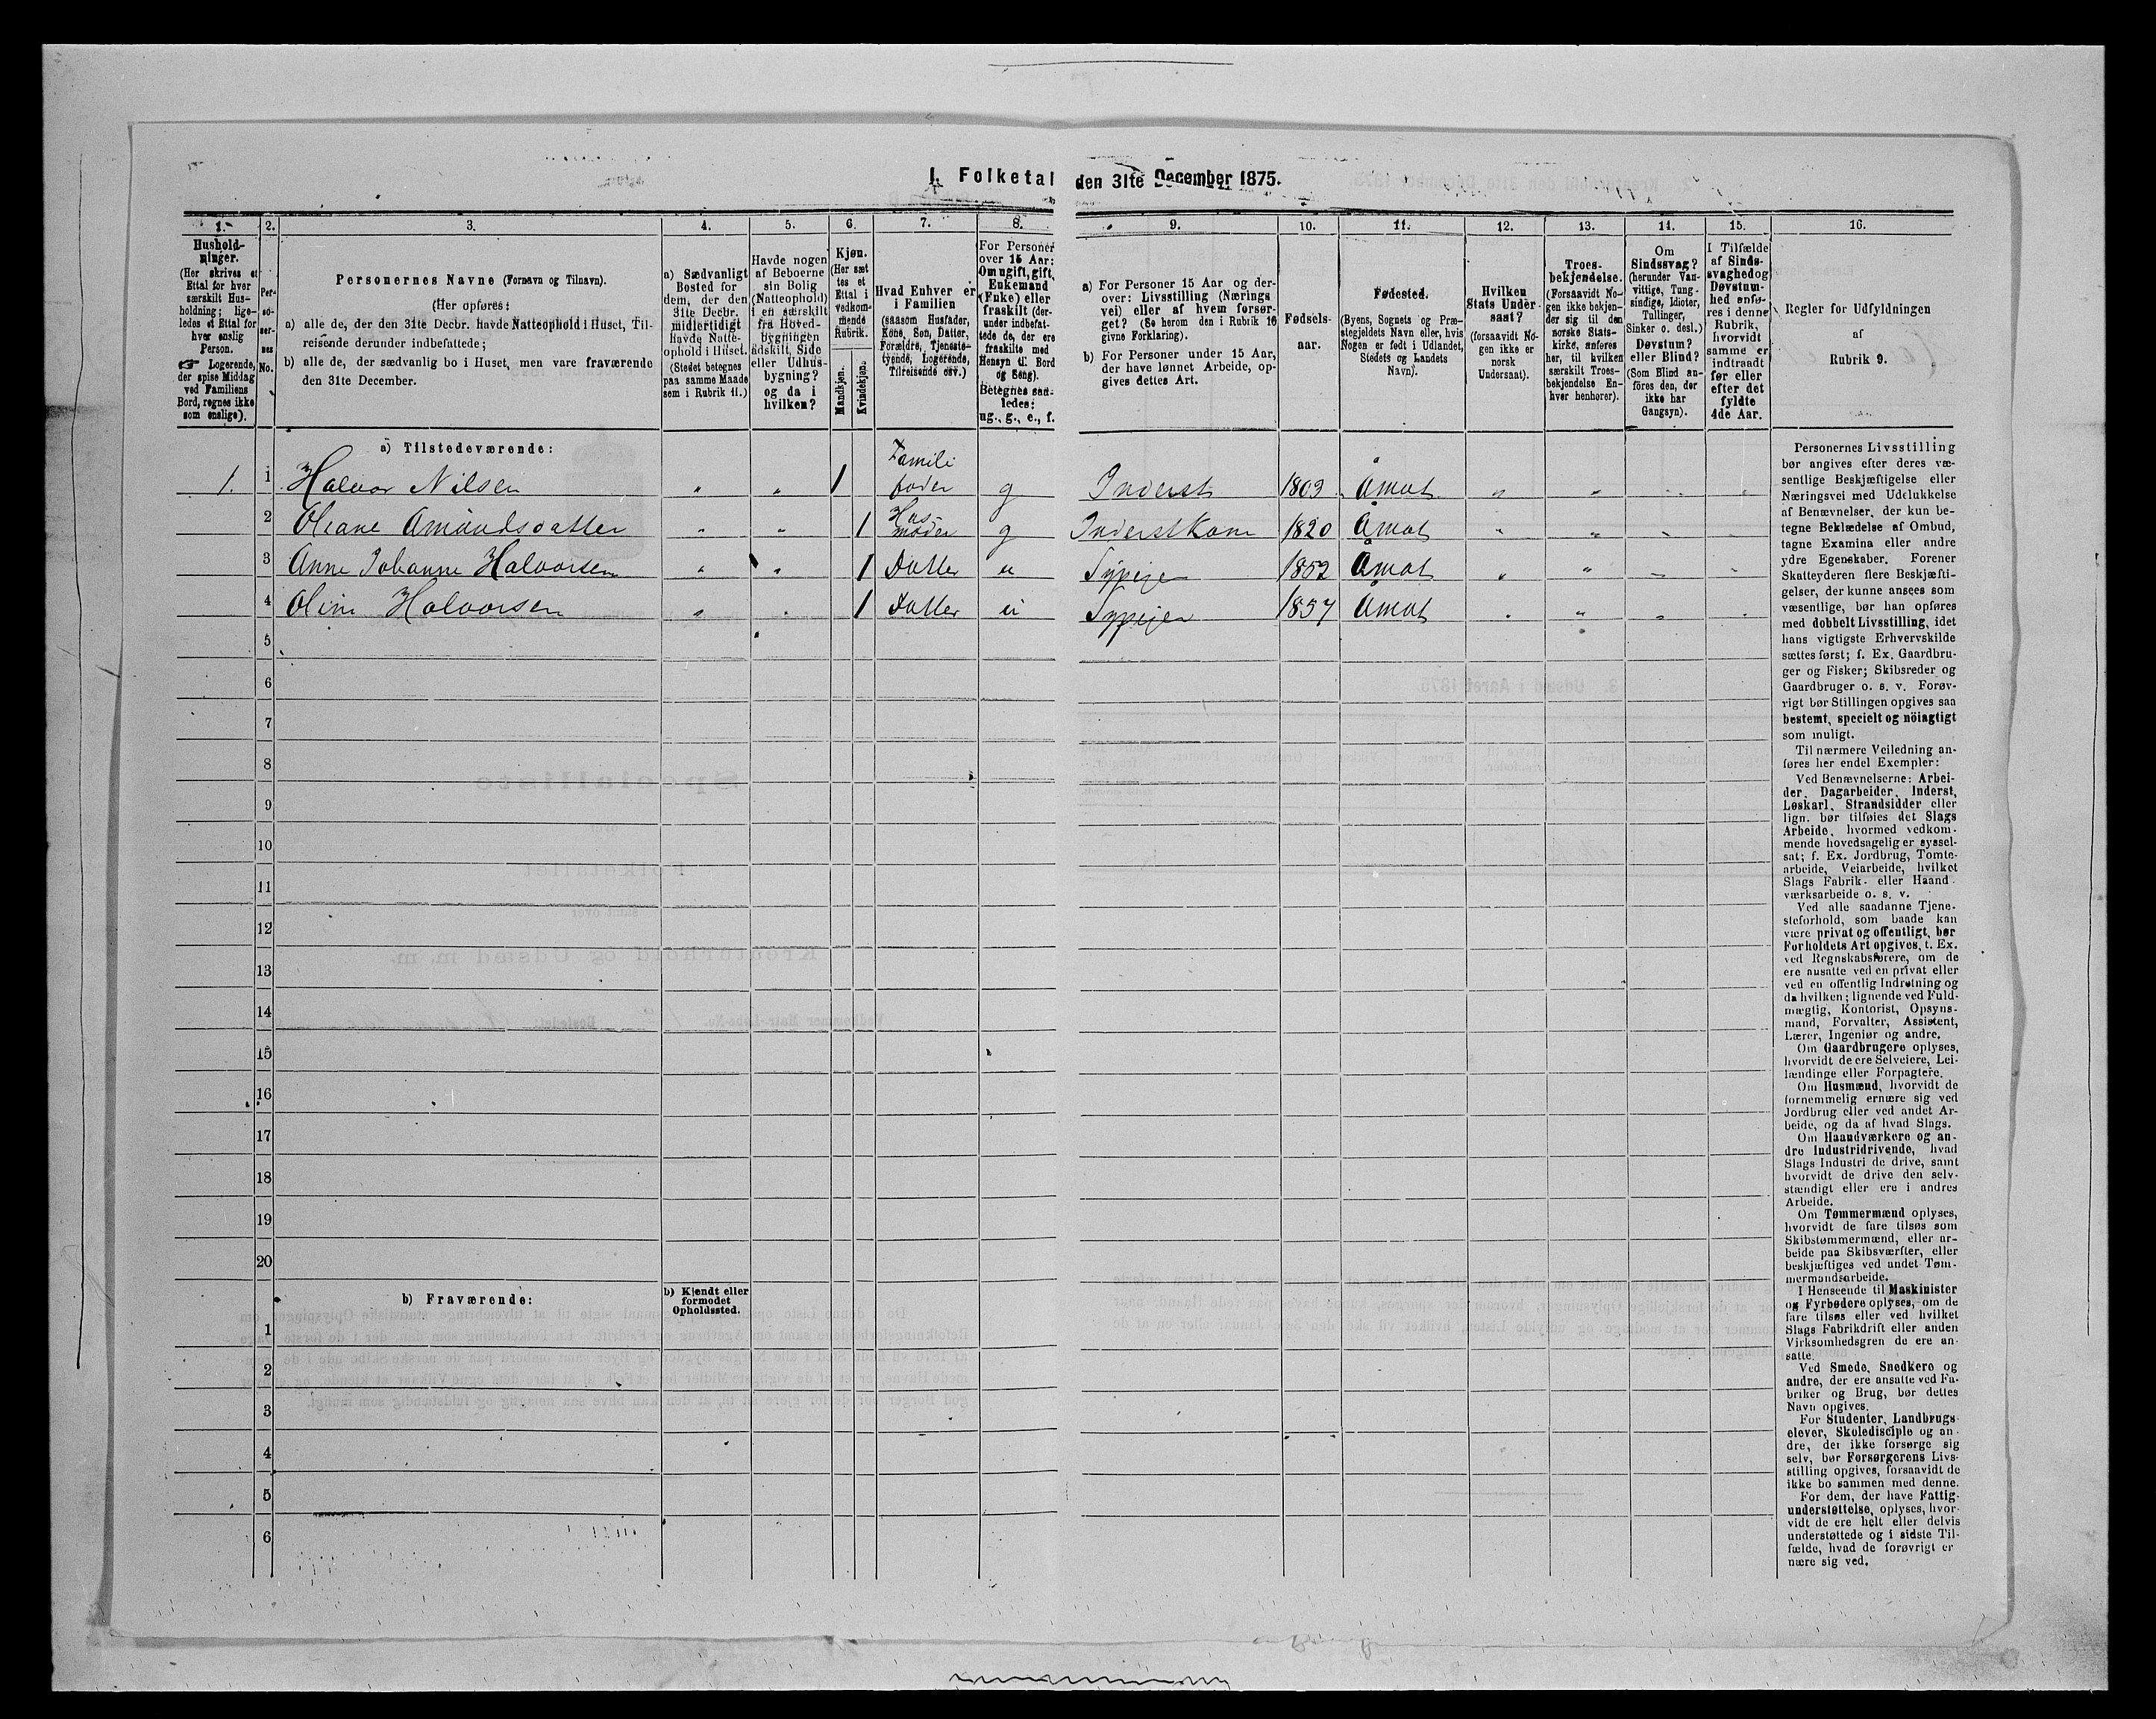 I. Folketal den 31te December 1875.
1. 2. 3. 4. 5. 6. 7. 8. 9. 10. 11. 12. 13. 14. 15. 16.
Hushold-
ninger.
(Her skrives et
Ettal for hver
særskilt Hus-
holdning; lige-
ledes et Ettal for
hver enslig
Person.
☞ Logerende,
der spise Middag
ved Familiens
Bord, regnes ikke
som enslige).
Per-
so-
ner-
nes
No.
Personernes Navne (Fornavn og Tilnavn).
(Her opføres:
a) alle de, der den 31te Decbr. havde Natteophold i Huset, Til-
reisende derunder indbefattede;
b) alle de, der sædvanlig bo i Huset, men vare fraværende
den 31te December.
a) Sædvanligt
Bosted for
dem, der den
31te Decbr.
midlertidigt
havde Natte-
ophold i Huset.
(Stedet betegnes
paa samme Maade
som i Rubrik 11.)
Havde nogen
af Beboerne
sin Bolig
(Natteophold)
i en særskilt
fra Hoved-
bygningen
adskilt, Side
eller Udhus-
bygning?
og da i
hvilken?
Kjøn.
(Her sæt
tes et
Ettal i
vedkom-
mende
Rubrik.
Mandkjøn.
Kvindekjøn.
Hvad Enhver er
i Familien
(saasom Husfader,
Kone, Søn, Datter,
Forældre, Tjeneste-
tyende, Logerende,
Tilreisende osv.)
For Personer
over 15 Aar:
Om ugift, gift,
Enkemand
(Enke) eller
fraskilt (der-
under indbefat-
tede de, der ere
fraskilte med
Hensyn til Bord
og Seng).
Betegnes saa-
ledes:
ug., g., e., f.
a) For Personer 15 Aar og der-
over: Livsstilling (Nærings
vei) eller af hvem forsør-
get? (Se herom den i Rubrik 16
givne Forklaring).
b) For Personer under 15 Aar,
der have lønnet Arbeide, op-
gives dettes Art.
Fødsels-
aar.
Fødested.
(Byens, Sognets og Præ-
stegjeldets Navn eller, hvis
Nogen er født i Udlandet,
Stedets og Landets
Navn).
Hvilken
Stats Under-
saat?
(forsaavidt No-
gen ikke er
norsk
Undersaat).
Troes-
bekjendelse.
(Forsaavidt No-
gen ikke bekjen-
der sig til den
norske Stats-
kirke, anføres
her, til hvilken
særskilt Troes-
bekjendelse En-
hver henhører).
Om
Sindssvag?
(herunder Van-
vittige, Tung-
sindige, Idioter,
Tullinger,
Sinker o. desl.)
Døvstum?
eller Blind?
(Som Blind an-
føres den, der
ikke har
Gangsyn).
I Tilfælde
af Sinds-
svaghed og
Døvstum-
hed anfø-
res i denne
Rubrik,
hvorvidt
samme er
indtraadt
før eller
efter det
fyldte
4de Aar.
Regler for Udfyldningen
af
Rubrik 9.
a) Tilstedeværende:
1. 1 Halvor Nilsen " " 1 Famili fader g Inderst 1809 Åmot " " " "
2 Oliane Amundsdatter " " 1 Hus- moder g Inderst Kone 1820 Åmot " " " "
3 Anne Johanne Halvorsen " " 1 Datter u Sypige 1852 Åmot " " " "
4 Oline Halvorsen " " 1 Datter u Sypige 1857 Åmot " " " "
5
6
7
8
9
10
11
12
13
14
15
16
17
18
19
20
b) Fraværende:
b) Kjendt eller
formodet
Opholdssted.
1
2
3
4
5
6
Personernes Livsstilling
bør angives efter deres væ-
sentlige Beskjæftigelse eller
Næringsvei med Udelukkelse
af Benævnelser, der kun be-
tegne Beklædelse af Ombud,
tagne Examina eller andre
ydre Egenskaber. Forener
Skatteyderen flere Beskjæfti-
gelser, der kunne ansees som
væsentlige, bør han opføres
med dobbelt Livsstilling, idet
hans vigtigste Erhvervskilde
sættes først; f. Ex. Gaardbru-
ger og Fisker; Skibsreder og
Gaardbruger o. s. v. Forøv-
rigt bør Stillingen opgives saa
bestemt, specielt og nöiagtigt
som muligt.
Til nærmere Veiledning an-
føres her endel Exempler:
Ved Benævnelserne: Arbei-
der, Dagarbeider, Inderst,
Løskarl, Strandsidder eller
lign. bør tilføies det Slags
Arbeide, hvormed vedkom-
mende hovedsagelig er syssel-
sat; f. Ex. Jordbrug, Tomte-
arbeide, Veiarbeide, hvilket
Slags Fabrik- eller Haand-
værksarbeide o. s. v.
Ved alle saadanne Tjene-
steforhold, som baade kan
være privat og offentligt, bør
Forholdets Art opgives, t. Ex.
ved Regnskabsførere, om de
ere ansatte ved en privat eller
ved en offentlig Indretning og
da hvilken; lignende ved Fuld-
mægtig, Kontorist, Opsyns-
mand, Forvalter, Assistent,
Lærer, Ingeniør og andre.
Om Gaardbrugere oplyses,
hvorvidt de ere Selveiere, Lei-
lændinge eller Forpagtere.
Om Husmænd, hvorvidt de
fornemmelig ernære sig ved
Jordbrug eller ved andet Ar-
beide, og da af hvad Slags.
Om Haandværkere og an-
dre Industridrivende, hvad
Slags Industri de drive, samt
hvorvidt de drive den selv-
stændigt eller ere i andres
Arbeide.
Om Tømmermænd oplyses,
hvorvidt de fare tilsøs som
Skibstømmermænd, eller ar-
beide paa Skibsværfter, eller
beskjæftiges ved andet Tøm-
mermandsarbeide.
I Henseende til Maskinister
og Fyrbødere oplyses, om de
fare tilsøs eller ved hvilket
Slags Fabrikdrift eller anden
Virksomhedsgren de ere an-
satte.
Ved Smede, Snedkere og
andre, der ere ansatte ved Fa-
briker og Brug, bør dettes
Navn opgives.
For Studenter, Landbrugs-
elever, Skoledisciple og an-
dre, der ikke forsørge sig
selv, bør Forsørgerens Livs-
stilling opgives, forsaavidt de
ikke bo sammen med denne.
For dem, der have Fattig-
understøttelse, oplyses, hvor-
vidt de ere helt eller delvis
understøttede og i sidste Til-
fælde, hvad de forøvrigt er
nære sig ved.